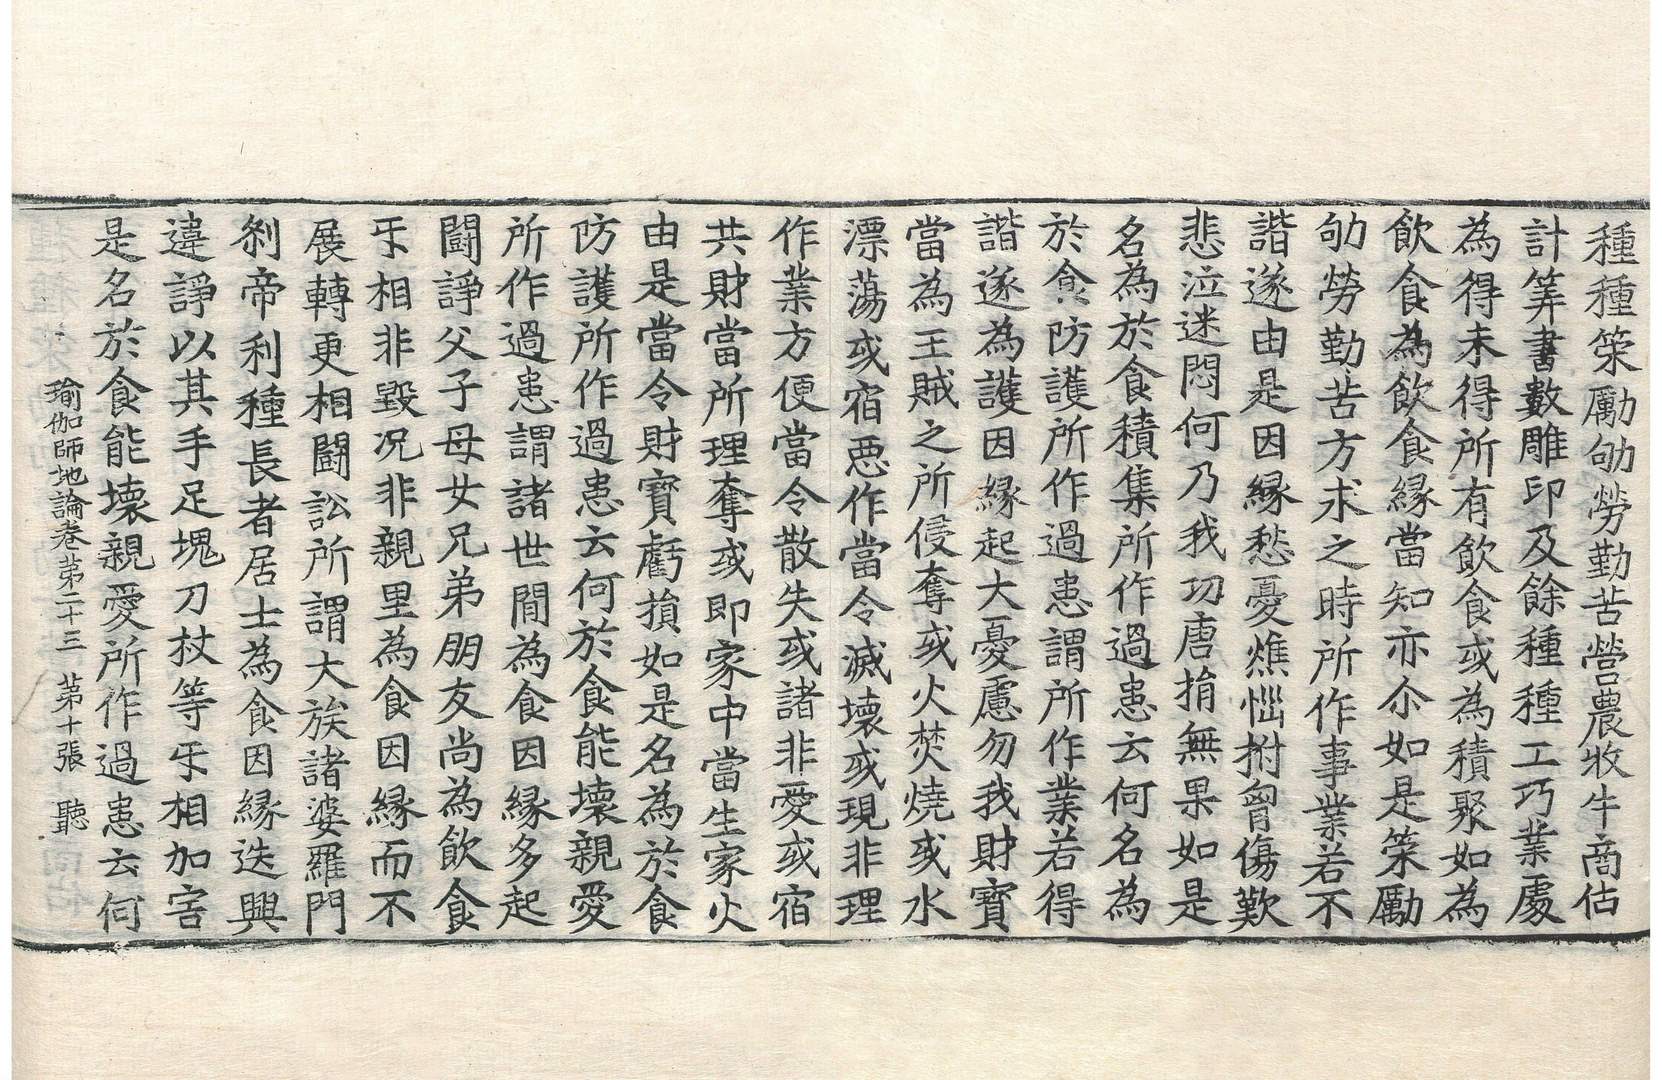 種種䇿勵劬勞勤苦營農牧牛商估
計筭書數雕印及餘種種工巧業處
為得未得所有飲食或為積聚如為
飲食為飲食緣當知亦尒如是䇿勵
劬勞勤苦方求之時所作事業若不
諧遂由是因緣愁憂燋惱拊胷傷歎
悲泣迷悶何乃我功唐捐無果如是
名為於食積集所作過患云何名為
於食防護所作過患謂所作業若得
諧遂為護因緣起大憂慮勿我財寶
當為王賊之所侵奪或火焚燒或水
漂蕩或宿惡作當令滅壞或現非理
作業方便當令散失或諸非愛或宿
共財當所理奪或即家中當生家火
由是當令財寶虧損如是名為於食
防護所作過患云何於食能壞親愛
所作過患謂諸世間為食因緣多起
鬪諍父子母女兄弟朋友尚為飲食
互相非毀況非親里為食因緣而不
展轉更相鬪訟所謂大族諸婆羅門
剎帝利種長者居士為食因緣迭興
違諍以其手足塊刀杖等互相加害
是名於食能壞親愛所作過患云何
瑜伽師地論卷第二十三 第十張 聽